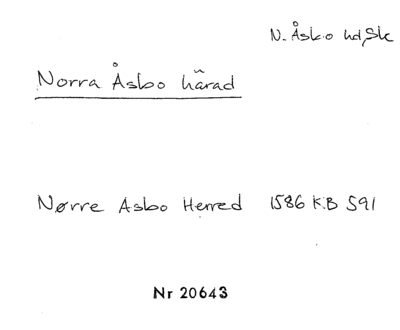 N. Åsbo hd, Sk
Norra Åsbo härad
Nørre Asbo Herred 1586 KB 591
Nr 20643